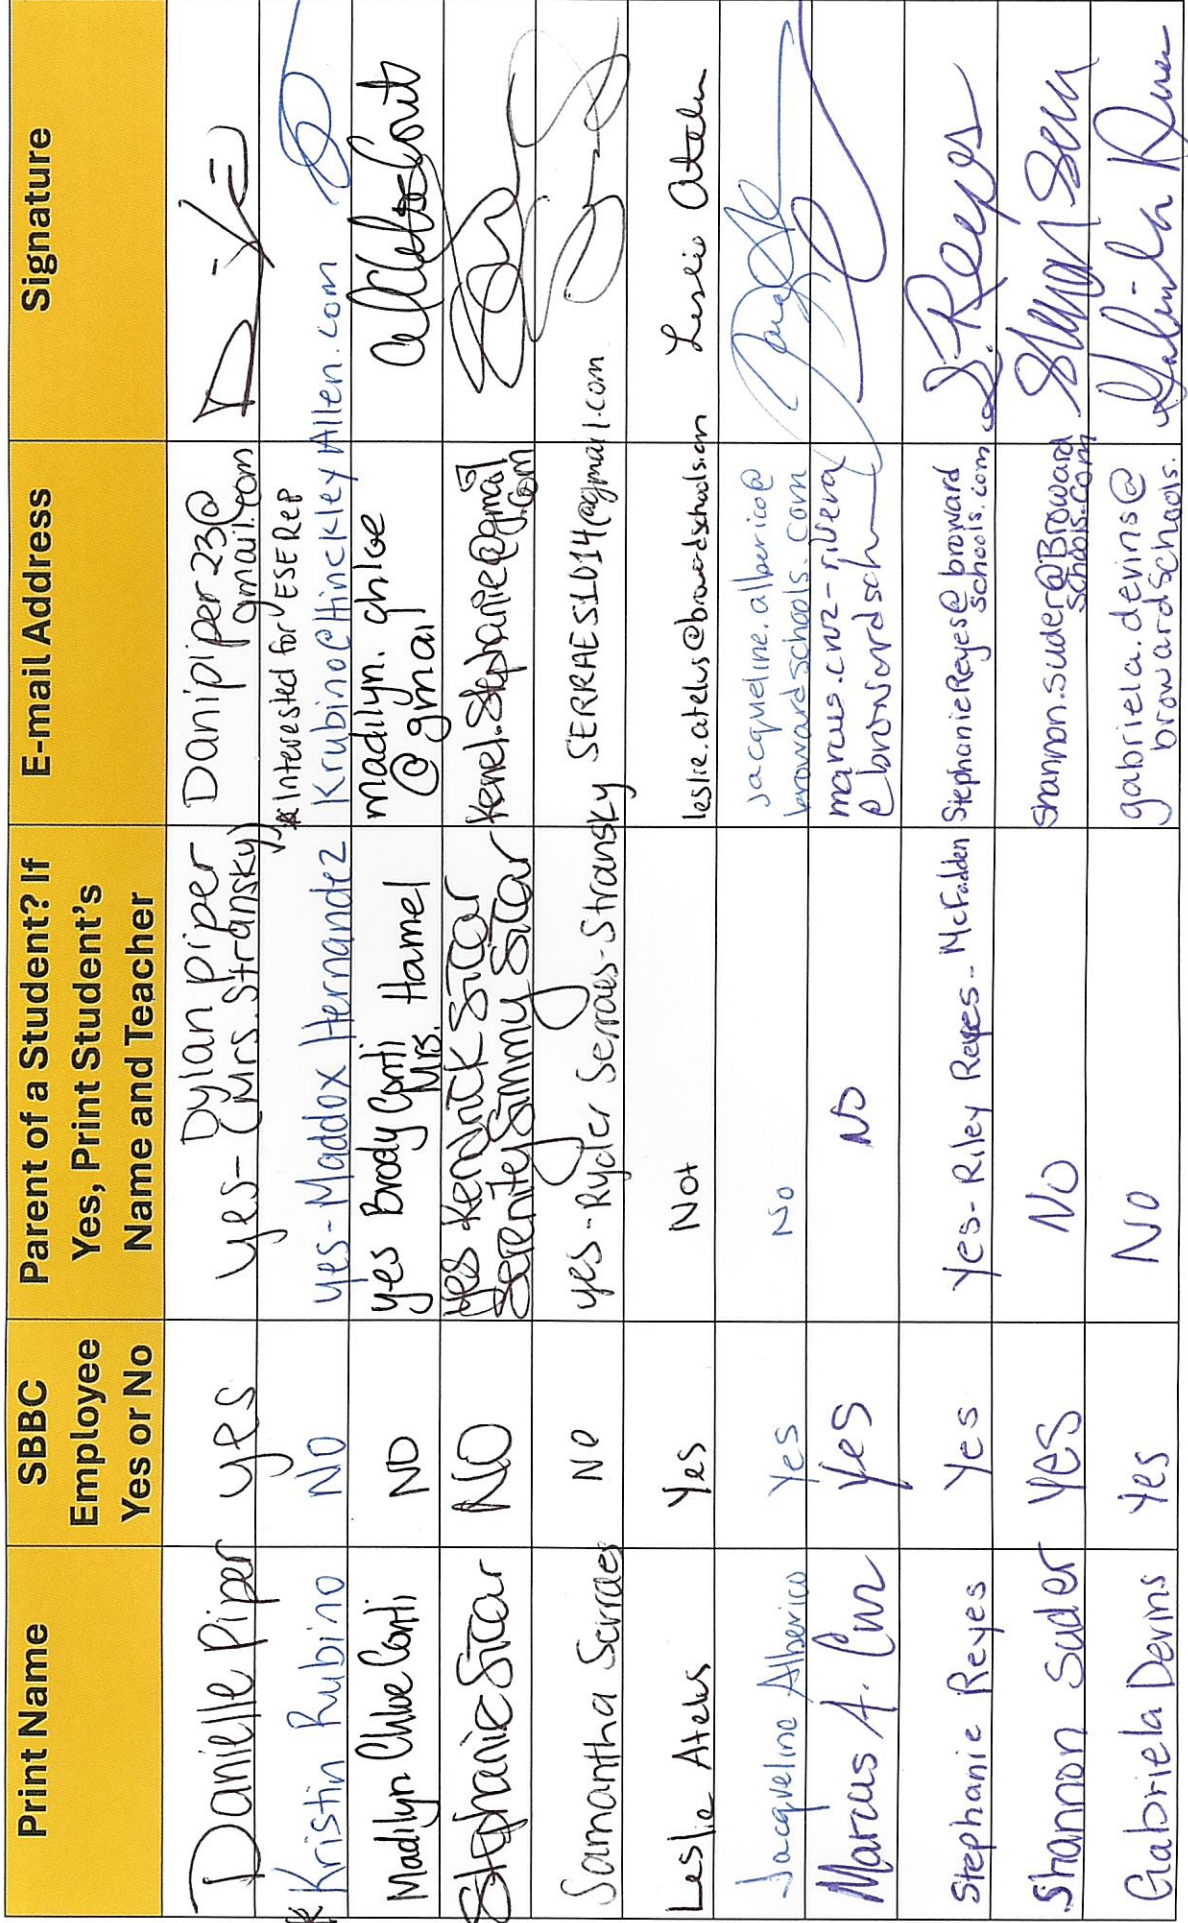 Print Name
SBBC
Employee
Yes or No
Parent of a Student? If
Yes, Print Student's
Name and Teacher
E-mail Address
Signature
Danielle Piper
yes
Dylan piper
yes- (Mrs. Stransky)
Danipiper23@
gmail.com
* Interested for ESE Rep
* Kristin Rubino
NO
yes-Maddox Hernandez
Krubino@HinckleyAllen.com
Madilyn Chloe Conti
NO
yes Brody Conti
Mrs. Hamel
madilyn.chloe
@gmai
Stephanie
NO
yes Kendrick
Serenity Simmy
Kenel.Stephanie@gmail
.com
Samantha Serraes
NO
yes-Ryder Serraes-Stransky
SERRAES1014@gmail.com
Leslie Atelus
Yes
Not
leslie.atelus@browardschools.com
Leslie Atelus
Jacqueline Alberico
Yes
No
jacqueline.alberico@
browardschools.com
Marcus A. Cruz
Yes
NO
marcus.cruz-rivera
@browardsch
Stephanie Reyes
Yes
Yes- Riley Reyes- McFadden
StephanieReyes@broward
schools.com
S. Reyes
Shannon Suder
YES
NO
Shannon.suder@Broward
schools.com
Gabriela Devins
Yes
NO
gabriela.devins@
browardschools.